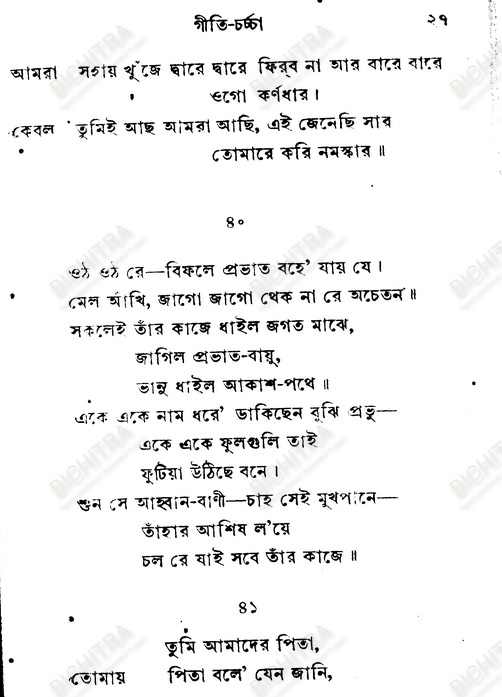 গীতি-চর্চ্চা ২৭
আমরা সহায় খুঁজে দ্বারে দ্বারে ফিরব না আর বারে বারে
ওগো কর্ণধার।
কেবল তুমিই আছ আমরা আছি, এই জেনেছি সার
তোমারে করি নমস্কার॥
৪০
ওঠ ওঠ রে—বিফলে প্রভাত বহে' যায় যে।
মেল আঁখি, জাগো জাগো থেক না রে অচেতন॥
সকলেই তাঁর কাজে ধাইল জগত মাঝে,
জাগিল প্রভাত-বায়ু,
ভানু ধাইল আকাশ-পথে॥
একে একে নাম ধরে' ডাকিছেন বুঝি প্রভু—
একে একে ফুলগুলি তাই
ফুটিয়া উঠিছে বনে।
শুন সে আহ্বান-বাণী—চাহ সেই মুখপানে—
তাঁহার আশিষ ল'য়ে
চল রে যাই সবে তাঁর কাজে॥
৪১
তুমি আমাদের পিতা,
তোমায় পিতা বলে' যেন জানি,
BICHITRA